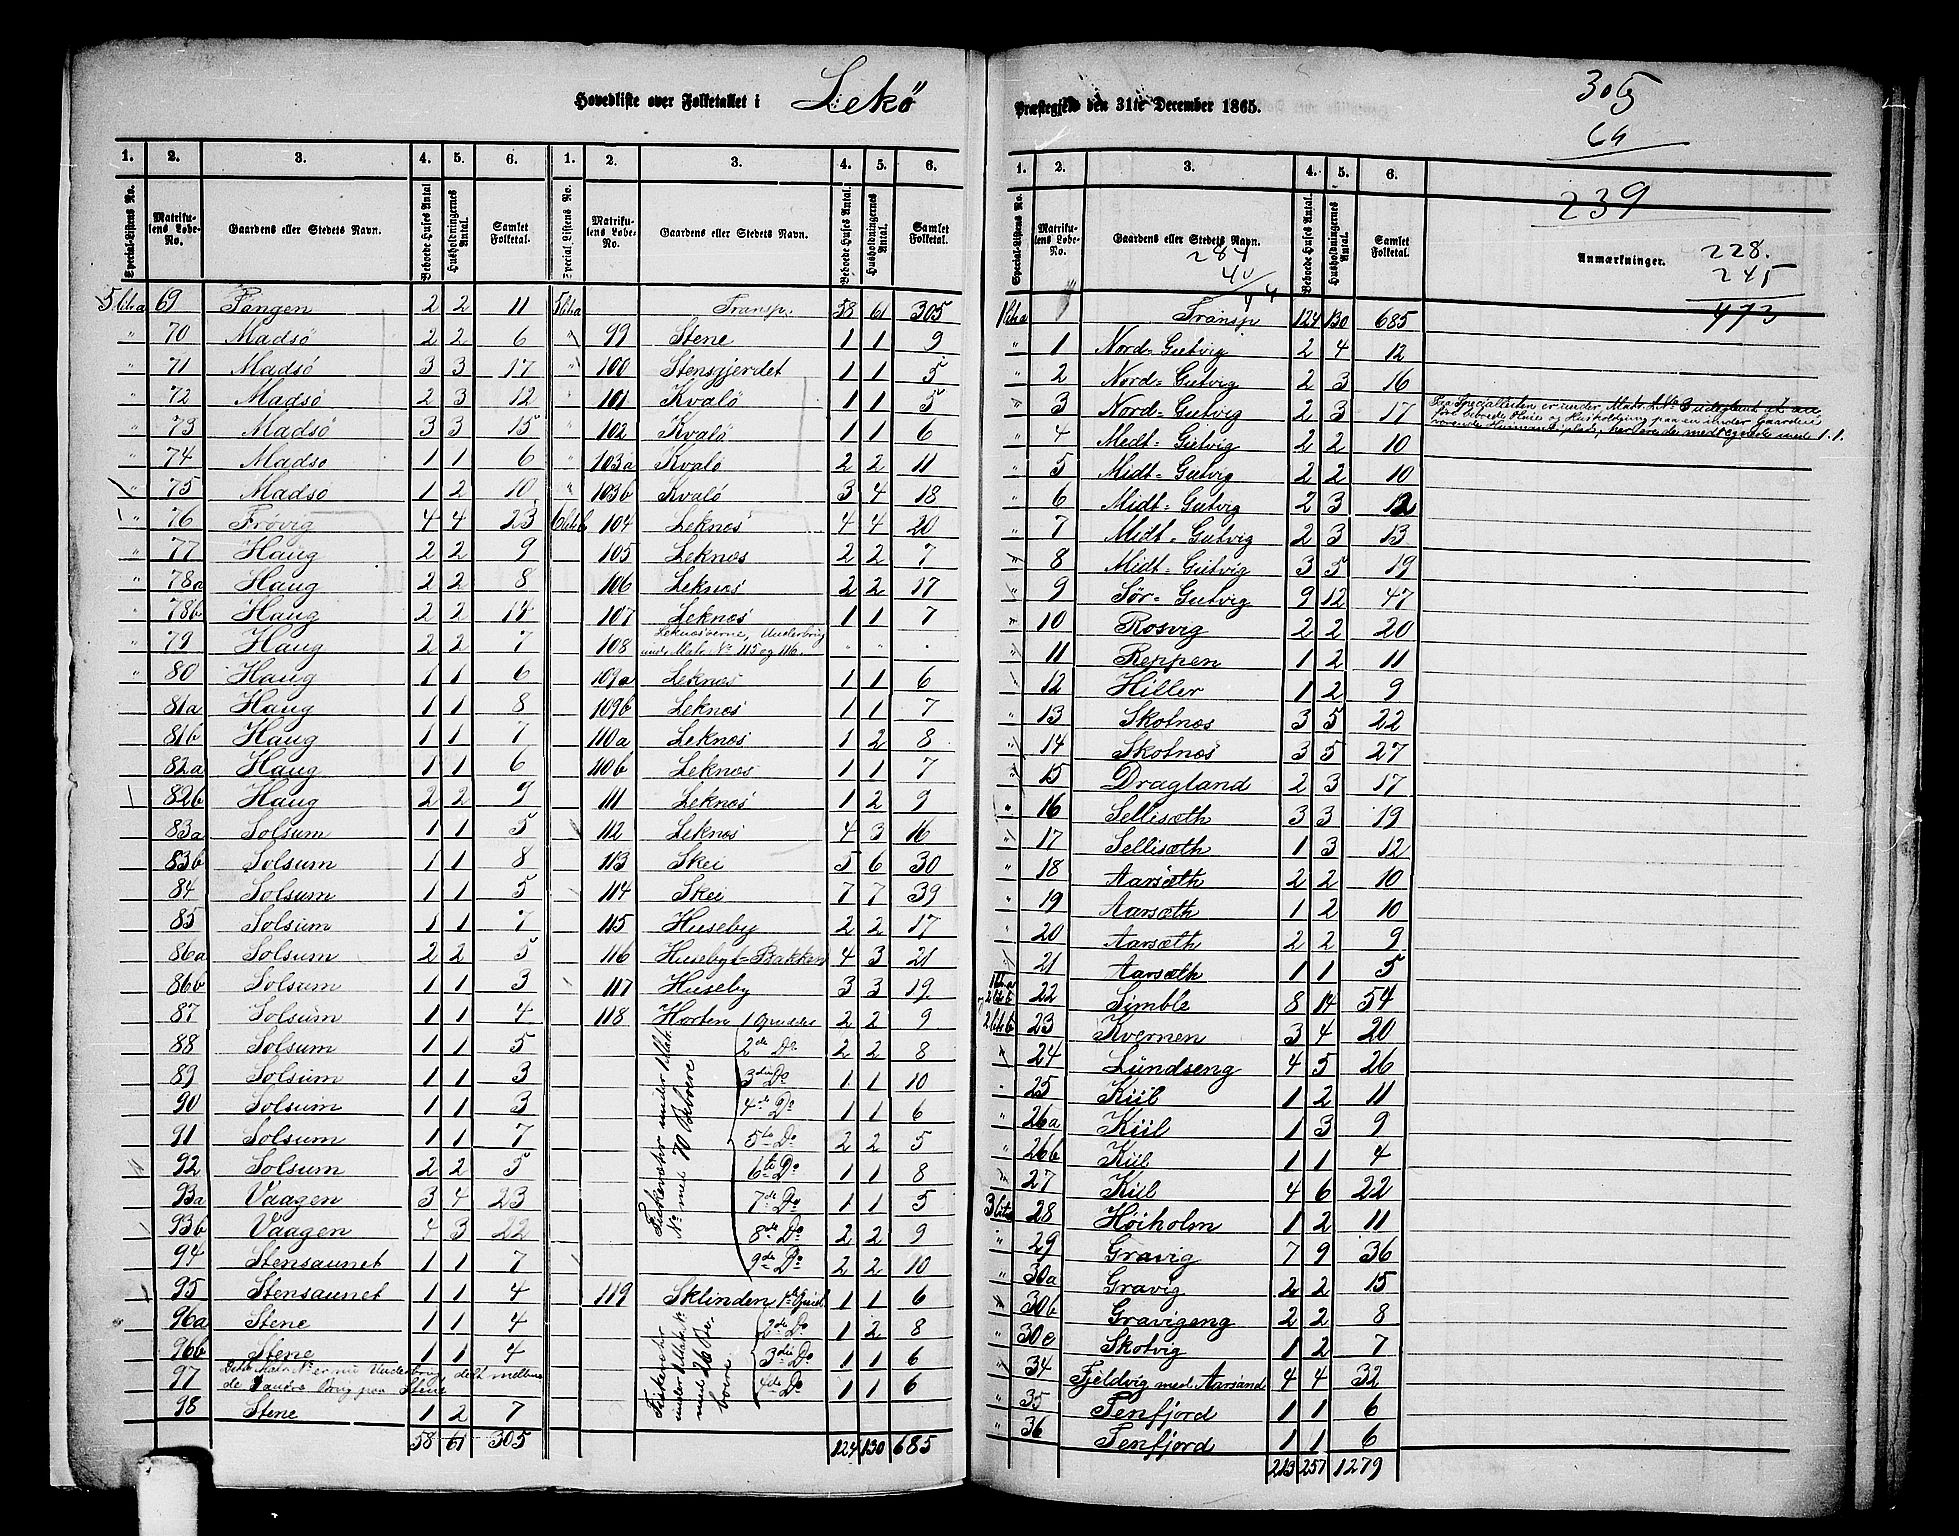 Hovedliste over Folketallet i Lekö Præstegjeld den 31te December 1865.
305
64
239
1. 2. 3. 4. 5. 6. 1. 2. 3. 4. 5. 6.
Special-Listens No. Matrikulens Løbe-No. Gaardens eller Stedets Navn. Beboede Huses Antal. Husholdningernes Antal. Samlet Folketal. Special-Listens No. Matrikulens Løbe-No. Gaardens eller Stedets Navn. Beboede Huses Antal. Husholdningernes Antal. Samlet Folketal.
69 Tangen 2 2 11
70 Madsö 2 2 6
71 Madsö 3 3 17
72 Madsö 2 3 12
73 Madsö 3 3 15
74 Madsö 1 1 6
75 Madsö 1 2 10
76 Frövig 4 4 23
77 Haug 2 2 9
78a Haug 2 2 8
78b Haug 2 2 14
79 Haug 2 2 7
80 Haug 1 1 6
81a Haug 1 1 8
81b Haug 1 1 7
82a Haug 1 1 6
82b Haug 2 2 9
83a Solsum 1 1 5
83b Solsum 1 1 8
84 Solsum 1 1 5
85 Solsum 1 1 7
86a Solsum 2 2 5
86b Solsum 1 1 3
87 Solsum 1 1 4
88 Solsum 1 1 5
89 Solsum 1 1 3
90 Solsum 1 1 3
91 Solsum 1 1 7
92 Solsum 2 2 5
93a Vaagen 3 4 23
93b Vaagen 4 3 22
94 Stensaunet 1 1 7
95 Stensaunet 1 1 4
96a Stene 1 1 4
96b Stene 1 1 4
97 Dette Matr. No er nu Underbrug, delt mellem
de andre Brug paa Stene
98 Stene 1 2 7
58 61 305
Transp. 58 61 305
99 Stene 1 1 9
100 Stensgjerdet 1 1 5
101 Kvalö 1 1 5
102 Kvalö 1 1 6
103a Kvalö 2 2 11
103b Kvalö 3 4 18
104 Leknæs 4 4 20
105 Leknæs 2 2 7
106 Leknæs 2 2 17
107 Leknæs 1 1 7
108 Leknæsöerne, Underbrug
under Matr. No 115 og 116. " " "
109a Leknæs 1 1 6
109b Leknæs 1 1 7
110a Leknæs 1 2 8
110b Leknæs 1 1 7
111 Leknæs 1 2 9
112 Leknæs 4 3 16
113 Skei 5 6 30
114 Skei 7 7 39
115 Huseby 2 2 17
116 Huseby-Bakken 4 3 21
117 Huseby 3 3 19
118 Horten 2 2 9
Fiskevær under 1 Matr. No med 70 Beboere
2de Do 2 2 8
3die Do 1 1 10
4de Do 1 1 6
5te Do 2 2 5
6te Do 1 1 8
7de Do 1 1 5
8de Do 2 2 9
9de Do 2 2 10
119 Sklinden 1 1 6
Fiskevær under 1 Matr. No med 26 Beboere
2de Do 1 2 8
3die Do 1 1 6
4de Do 1 1 6
124 130 685
1. 2. 3. 4. 5. 6.
Special-Listens No. Matrikulens Løbe-No. Gaardens eller Stedets Navn. Beboede Huses Antal. Husholdningernes Antal. Samlet Folketal. Anmærkninger.
284
40
44
228.
245
473
Transp 124 130 685
1 Nord-Gutvig 2 4 12
2 Nord-Gutvig 2 3 16
3 Nord-Gutvig 2 3 17
4 Medt-Gutvig 2 2 10
5 Midt-Gutvig 2 2 10
6 Midt-Gutvig 2 3 12
7 Midt-Gutvig 2 3 13
8 Midt-Gutvig 3 5 19
9 Sør-Gutvig 9 12 47
10 Rosvig 2 2 20
11 Reppen 1 2 11
12 Hiller 1 2 9
13 Skotnæs 3 5 22
14 Skotnæs 3 5 27
15 Dragland 2 3 17
16 Sellisæth 3 3 19
17 Sellisæth 1 3 12
18 Aarsæth 2 2 10
19 Aarsæth 1 2 10
20 Aarsæth 2 2 9
21 Aarsæth 1 1 5
22 Simble 8 14 54
23 Kvernen 3 4 20
24 Lundseng 4 5 26
25 Kiil 1 2 11
26a Kiil 1 3 9
26b Kiil 1 1 4
27 Kiil 4 6 22
28 Höiholm 1 2 11
29 Gravig 7 9 36
30a Gravig 2 2 15
30b Gravigeng 2 2 8
30c Skotvig 1 2 7
34 Fjeldvig med Aarsand 4 4 32
35 Tenfjord 1 1 6
36 Tenfjord 1 1 6
213 257 1279